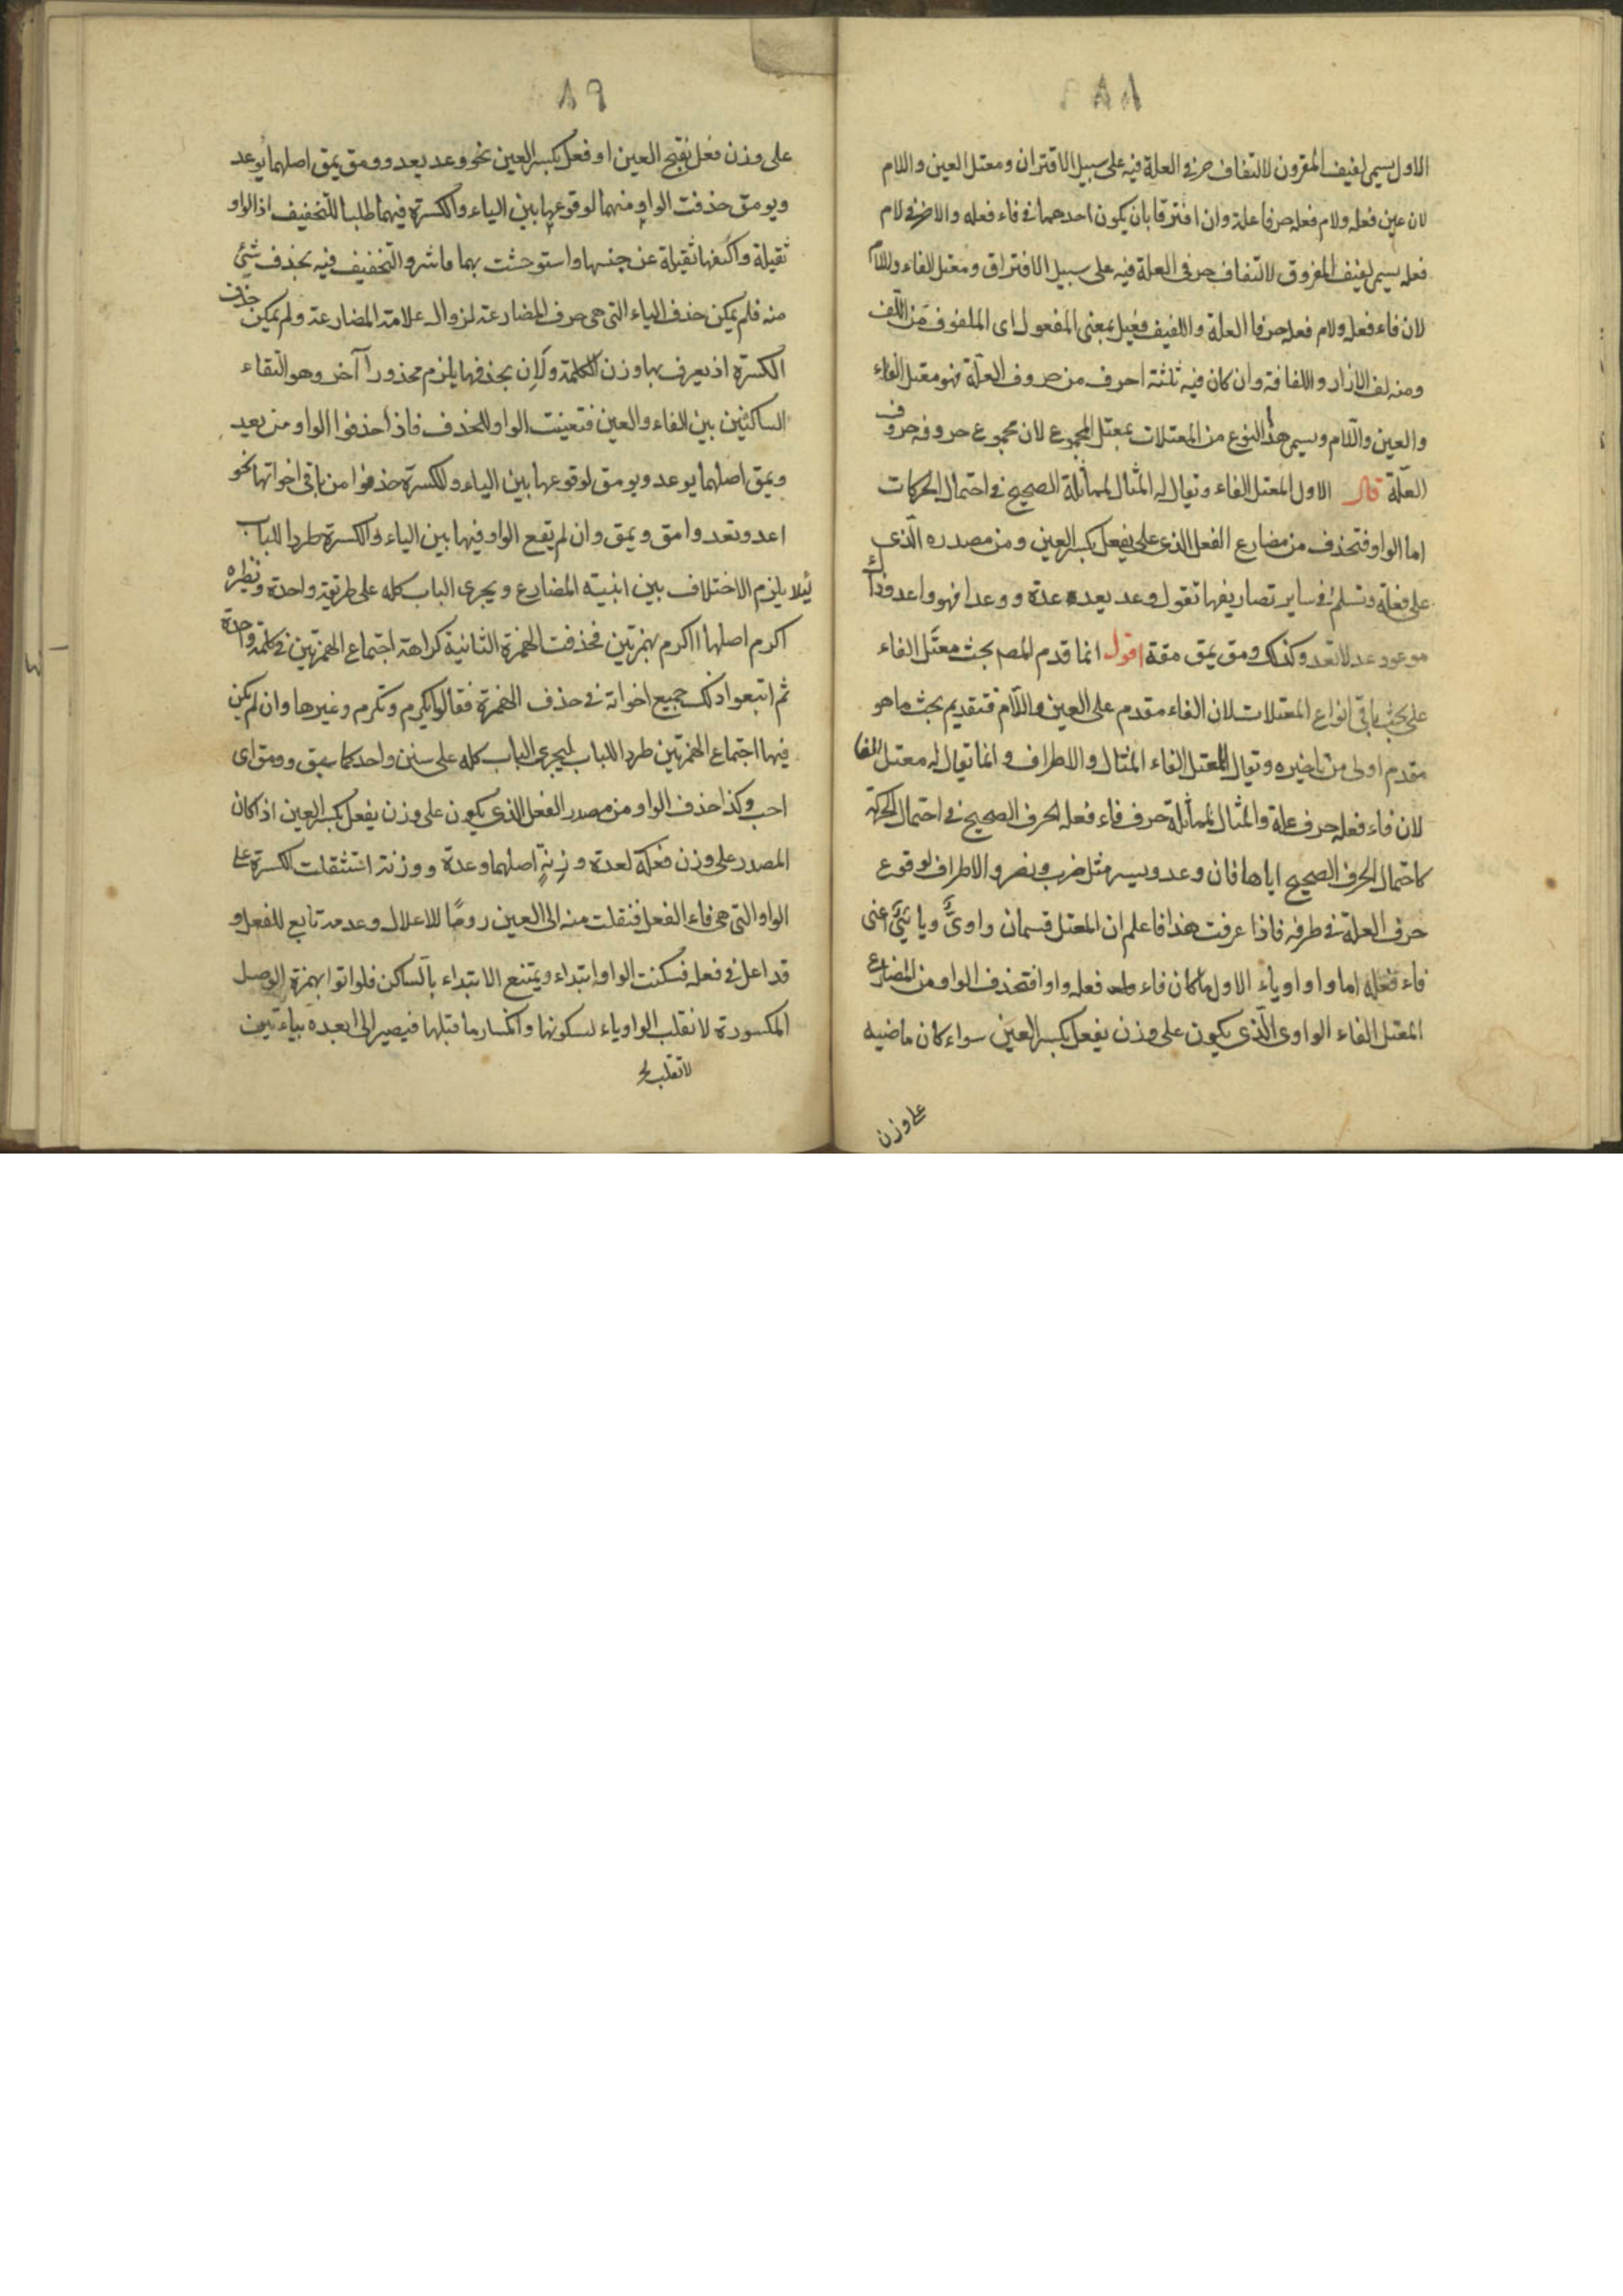 ٨٨
الاول يسمى لفيف المقرون لالتفاف حرفى العلة فيه على سبيل الاقتران ومعتل العين واللام
لان عين فعله ولام فعله حرفا علة وان افترقا بان يكون احدهما فى فاء فعله والاخر فى لام
فعله يسمى لفيف المفروق لالتفاف حرفى العلة فيه على سبيل الافتراق ومعتل الفاء واللام
لان فاء فعله ولام فعله حرفا العلة واللفيف فعيل بمعنى المفعول اى الملفوف من اللف
ومنه لف الازار واللفافة وان كان فيه ثلثة احرف من حروف العلة فهو معتل الفاء
والعين واللام ويسمى هذا النوع من المعتلات بمعتل المجموع لان مجموع حروفه حروف
العلة قال الاول المعتل الفاء ويقال له المثال لمماثلة الصحيح فى احتمال الحركات
اما الواو فتحذف من مضارع الفعل الذى على يفعل بكسر العين ومن مصدره الذى
على فعلة وتسلم فى ساير تصاريفها تقول وعد يعد عدة ووعدا فهو واعد وذاك
موعود عد لا تعد وكذلك ومق يمق مقة اقول انما قدم المصـ بحث معتل الفاء
على بحث باقى انواع المعتلات لان الفاء مقدم على العين واللام فتقديم بحث ما هو
مقدم اولى من تاخيره ويقال للمعتل الفاء المثال والاطراف وانما يقال له معتل الفا
لان فاء فعله حرف علة والمثال لمماثلة حرف فاء فعله الحرف الصحيح فى احتمال الحركة
كاحتمال الحرف الصحيح اياها فان وعد ويسر مثل ضرب ونصر والاطراف لوقوع
حرف العلة فى طرفه فاذا عرفت هذا فاعلم ان المعتل قسمان واوى ويائى اعنى
فاء فعله اما واو او ياء الاول ما كان فاء فعله واوا فتحذف الواو من المضارع
المعتل الفاء الواوى الذى يكون على وزن يفعل بكسر العين سواء كان ماضيه
على وزن
٨٩
على وزن فعل بفتح العين او فعل بكسر العين نحو وعد يعد وومق يمق اصلهما يوعد
ويومق حذفت الواو منهما لوقوعها بين الياء والكسرة فيهما طلبا للتخفيف اذ الواو
ثقيلة واكنفها ثقيلة عن جنسها واستوحشت بهما فاشرو التخفيف فيه بحذف شئ
منه فلم يمكن حذف الياء التى هى حرف المضارعة لزوال علامة المضارعة ولم يمكن حذف
الكسرة اذ يعرف بها وزن الكلمة ولان بحذفها يلزم محذورا آخر وهو التقاء
الساكنين بين الفاء والعين فتعينت الواو للحذف فاذا حذفوا الواو من يعد
ويمق اصلهما يوعد ويومق لوقوعها بين الياء والكسرة حذفوا من باقى اخواتها نحو
اعد وتعد وامق ويمق وان لم يقع الواو فيها بين الياء والكسرة طردا للباب
لئلا يلزم الاختلاف بين ابنية المضارع ويجرى الباب كله على طريقة واحدة ونظيره
اكرم اصلها ااكرم بهمزتين فحذفت الهمزة الثانية كراهة اجتماع الهمزتين فى كلمة واحدة
ثم اتبعوا ذلك جميع اخواته فى حذف الهمزة فقالوا يكرم وتكرم وغيرها وان لم يكن
فيها اجتماع الهمزتين طردا للباب ليجرى الباب كله على سنن واحد كما سبق وومق اى
احب وكذا حذف الواو من مصدر الفعل الذى يكون على وزن يفعل بكسر العين اذا كان
المصدر على وزن فعلة كعدة وزنة اصلهما وعدة ووزنة استثقلت الكسرة على
الواو التى هى فاء الفعل فنقلت منه الى العين روما للاعلال وعدمه تابع للفعل و
قد اعل فى فعله فسكنت الواو ابتداء ويمتنع الابتداء بالساكن فلو اتوا بهمزة الوصل
المكسورة لانقلب الواو ياء لسكونها وانكسار ما قبلها فيصير الى ايعده بياء تيمن
لانقلب